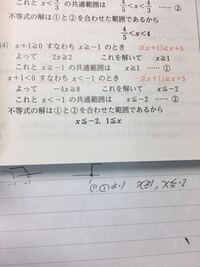 これと x<4/3 の共通範囲は 4/5<x<4/3 …… ②
不等式の解は①と②を合わせた範囲であるから
4/5<x<4
(4) x+1≧0 すなわち x≧-1 のとき 3(x+1)≧x+5
よって 2x≧2 これを解いて x≧1
これと x≧-1 の共通範囲は x≧1 …… ①
x+1<0 すなわち x<-1 のとき -3(x+1)≧x+5
よって -4x≧8 これを解いて x≦-2
これと x<-1 の共通範囲は x≦-2 …… ②
不等式の解は①と②を合わせた範囲であるから
x≦-2, 1≦x
①②より x≧1, x≦-2